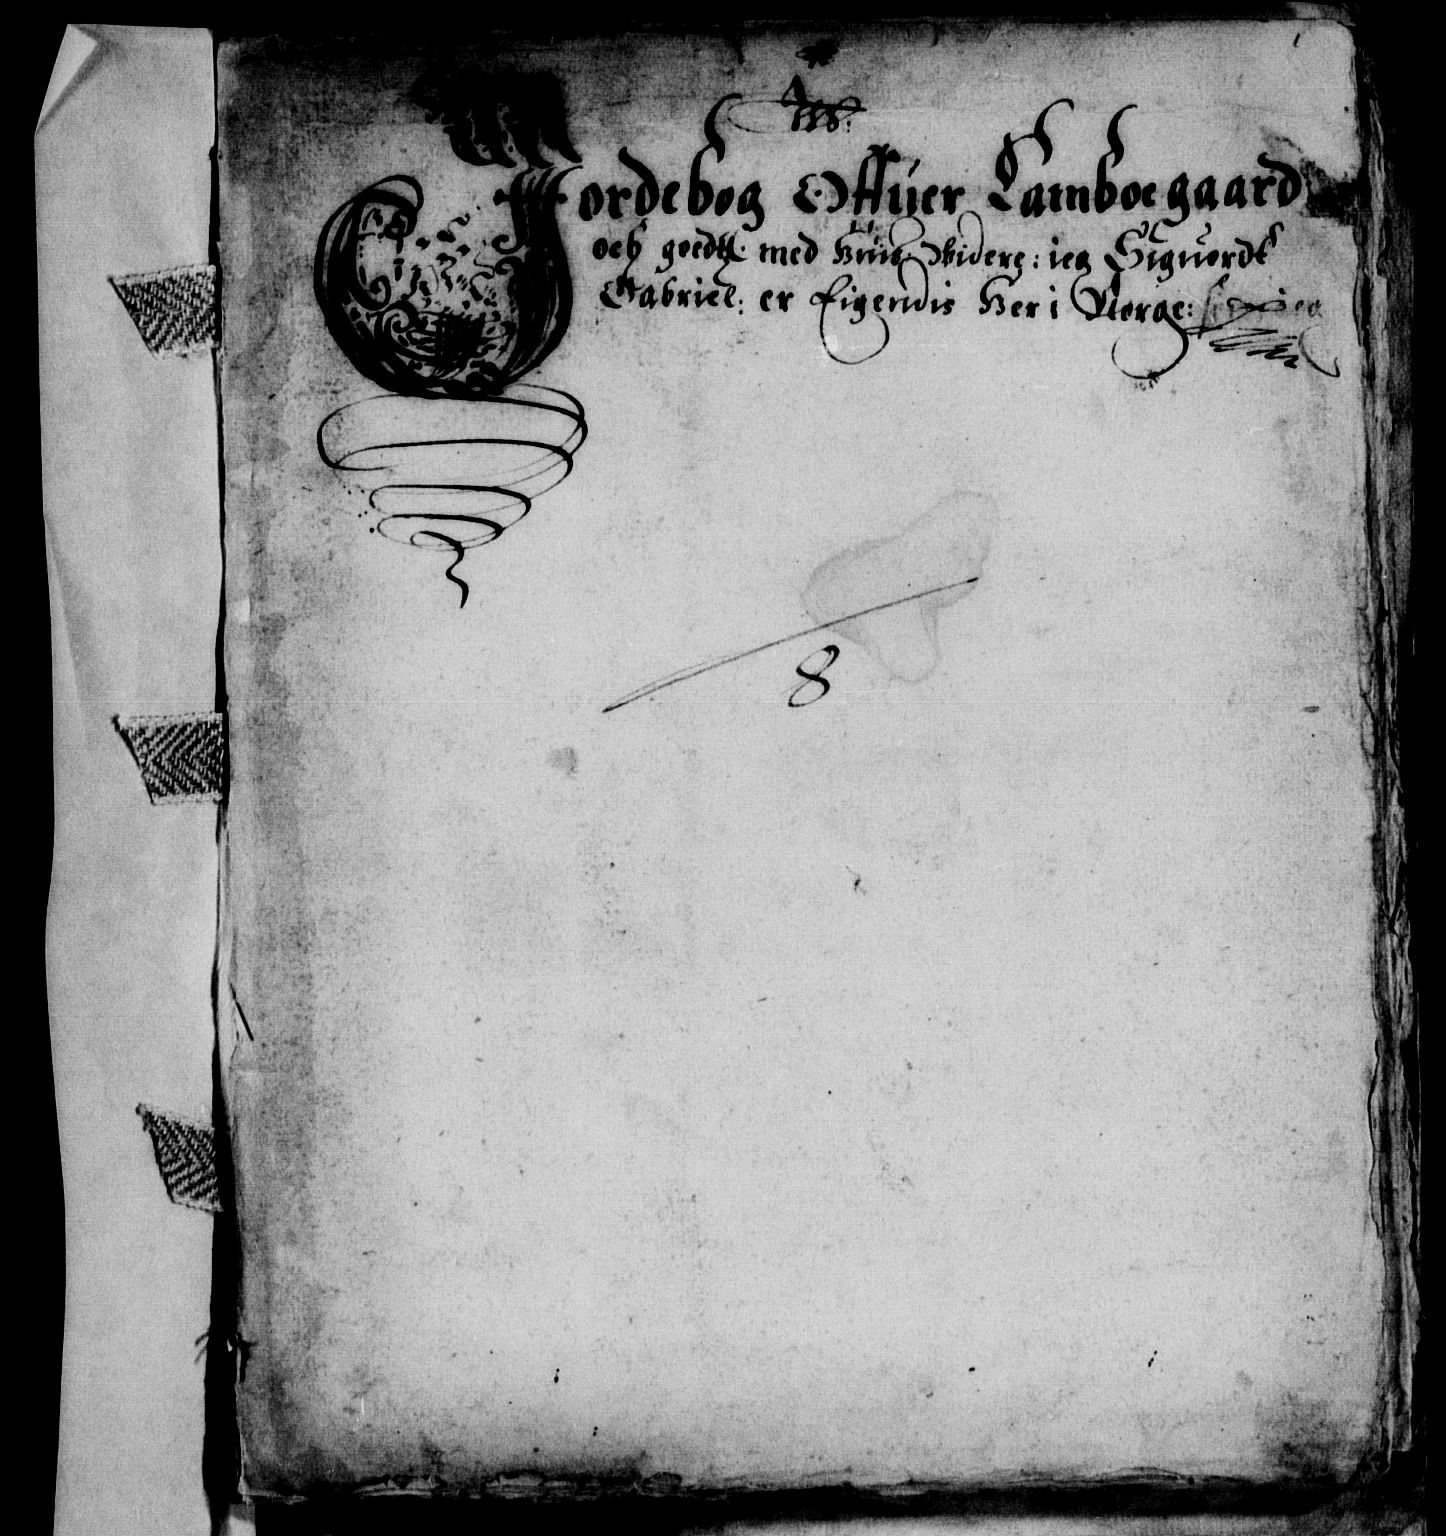 Jordebog Offuer Lamboegaard
och goedtz: med huis widere: ieg Siguordt
Gabriel: er Eigendis her i Norge:
8